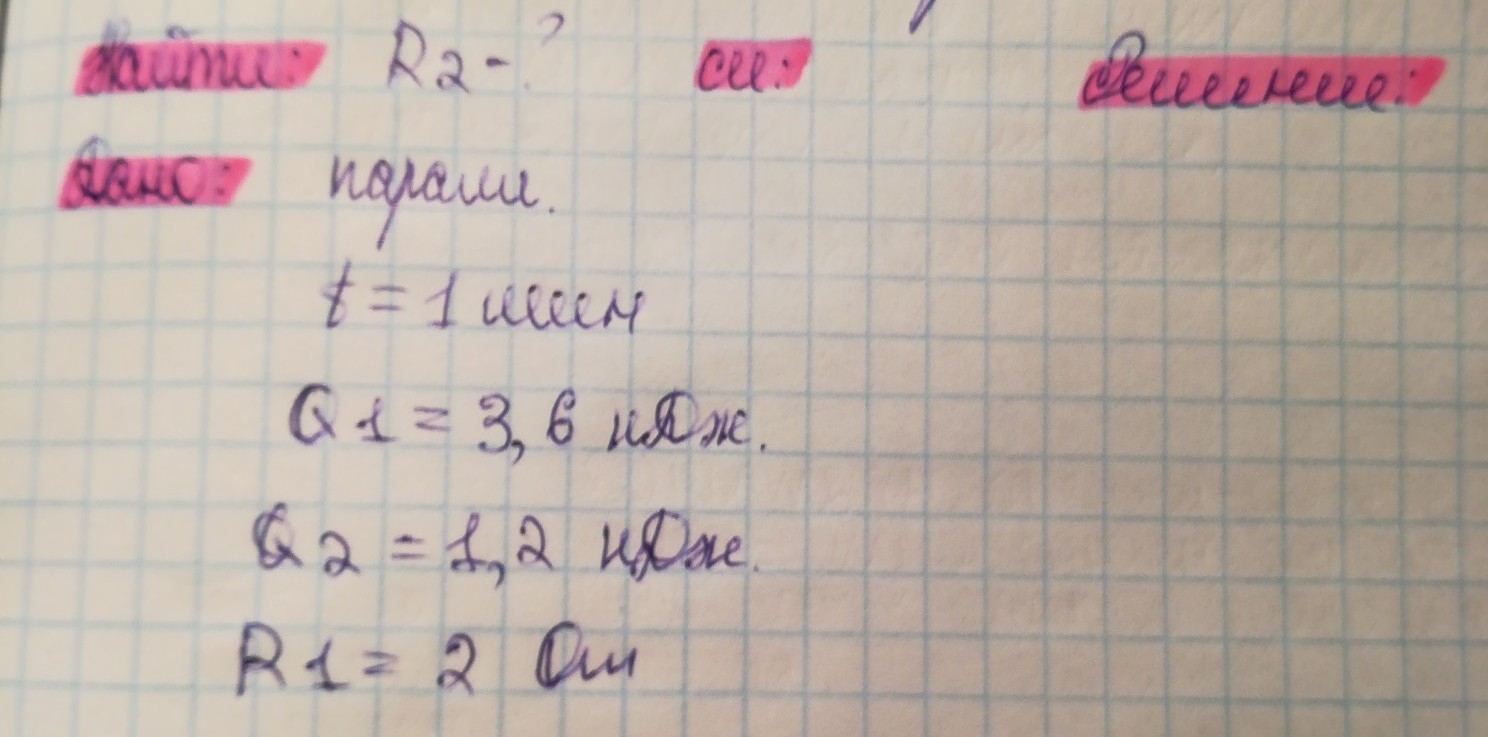 Найти: R2-? си: Решение:
Дано: паралл.
t = 1 мин
Q1 = 3,6 кДж.
Q2 = 1,2 кДж.
R1 = 2 Ом